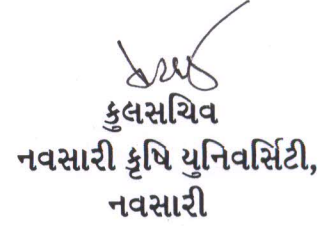 કુલસચિવ
નવસારી કૃષિ યુનિવર્સિટી,
નવસારી